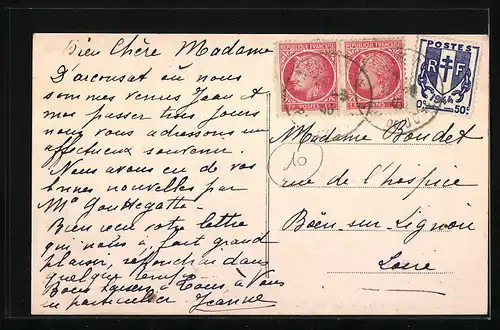 Bien Chère Madame
D'arconsat où nous
sommes venus Jean et
moi passer trois jours
nous vous adressons un
affectueux souvenir.
Nous avons eu de vos
bonnes nouvelles par
Me Gouttegatte
Bien reçu votre lettre
qui nous a fait grand
plaisir, répondrai dans
quelque temps
Bons baisers à Tous, à Vous
en particulier. Jeanne
REPUBLIQUE FRANÇAISE
POSTES
REPUBLIQUE FRANÇAISE
POSTES
POSTES
RF
50c
10
Madame Boudet
rue de l'hospice
Boën-sur-Lignon
Loire